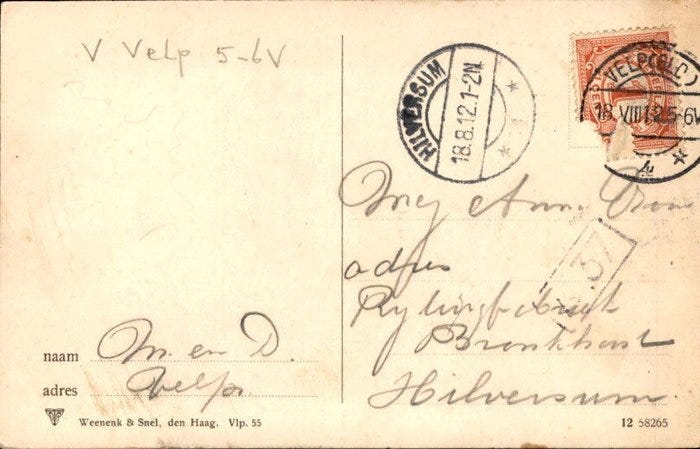 V Velp 5-6V
HILVERSUM
18.8.12.1-2N
VELP(GLD)
18.VIII.12.5-6V
Mej Anna
adres
37
Bronkhorst
Hilversum.
naam M. en D.
adres Velp.
Weenenk & Snel, den Haag. Vlp. 55
12 58265